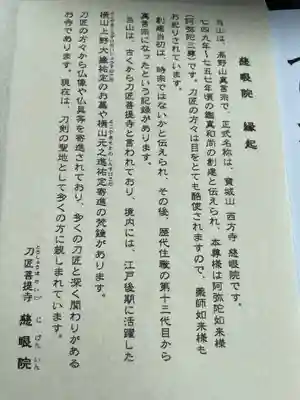 慈眼院 縁起
当山は、高野山真言宗で、正式名称は、寶城山 西方寺 慈眼院です。
七四九年～七五七年頃の鑑真和尚の創建と伝えられ、本尊様は阿弥陀如来様
(阿弥陀三尊)です。刀匠の方々は目をとても酷使されますので、薬師如来様も
お祀りされています。
創建当初は、時宗ではないかと伝えられ、その後、歴代住職の第十三代目から
真言宗になったという記録があります。
当山は、古くから刀匠菩提寺と言われており、境内には、江戸後期に活躍した
横山上野大掾祐定のお墓や横山元之進祐定寄進の梵鐘があります。
刀匠の方々から仏像や仏具等を寄進されており、多くの刀匠と深く関わりがある
お寺であります。現在は、刀剣の聖地として多くの方に親しまれています。
刀匠菩提寺 慈眼院